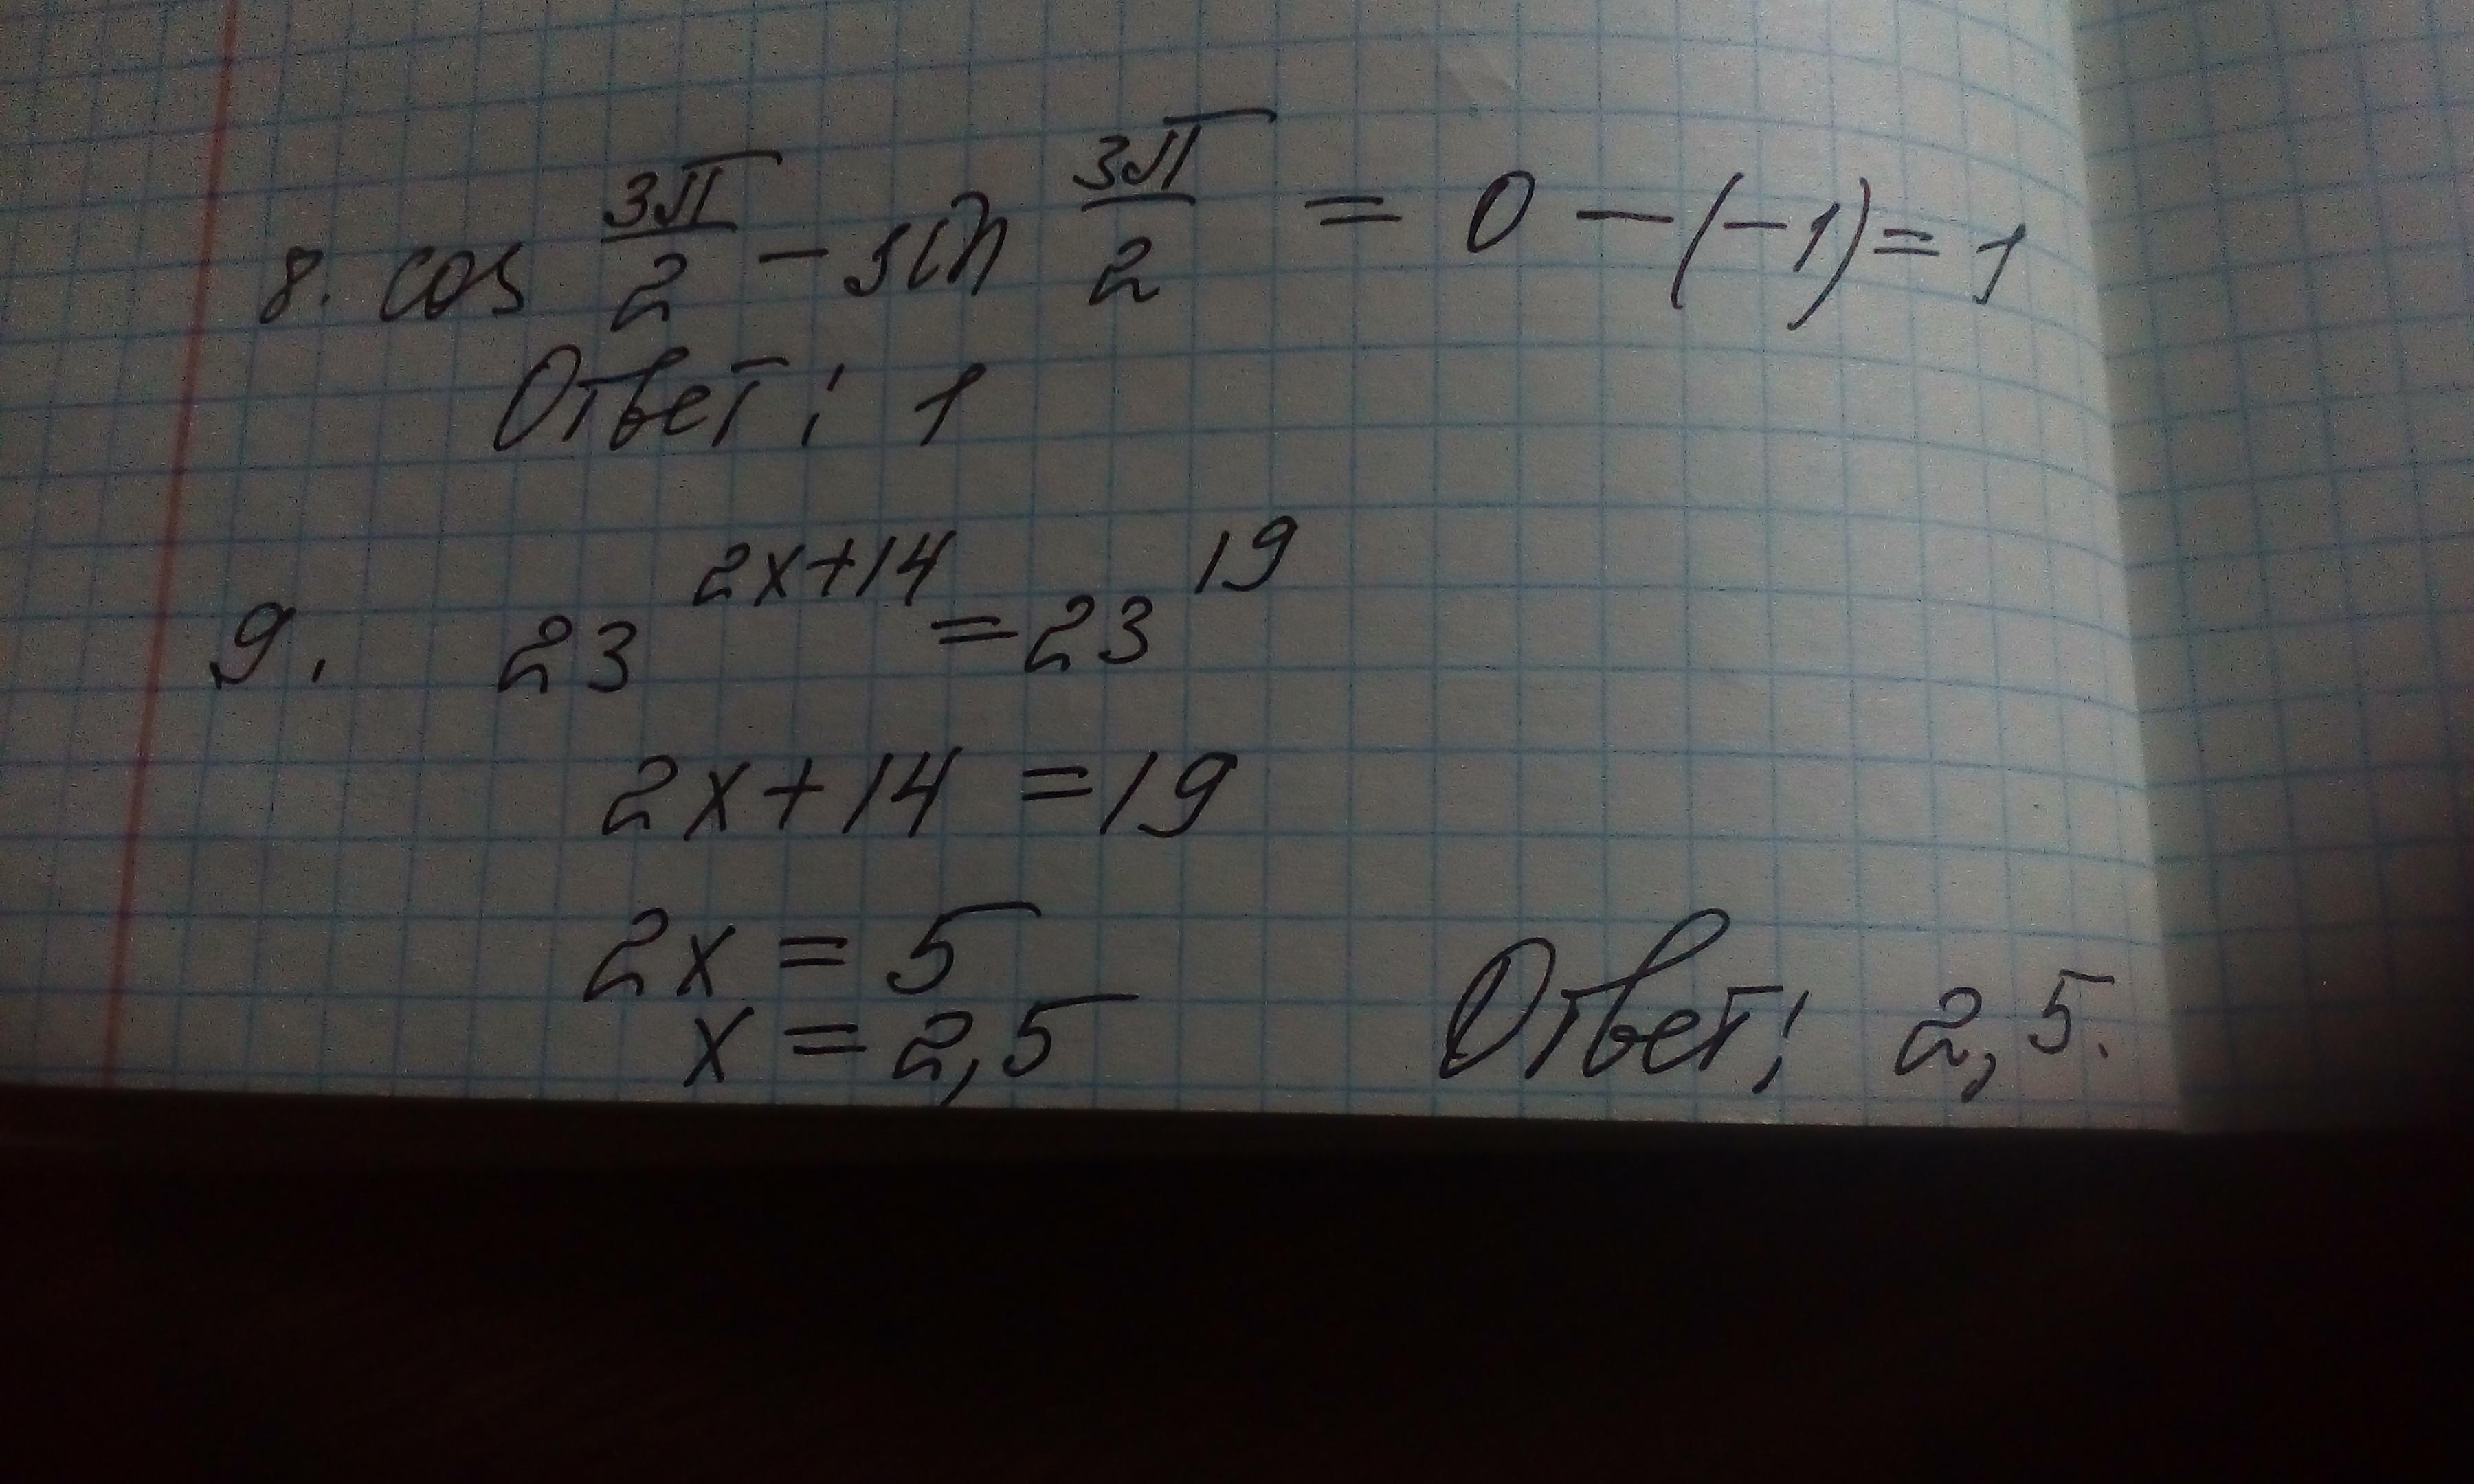 8. cos 3π/2 − sin 3π/2 = 0 − (−1) = 1
Ответ: 1
9. 23^(2x+14) = 23^19
2x+14 = 19
2x = 5
x = 2,5 Ответ: 2,5.